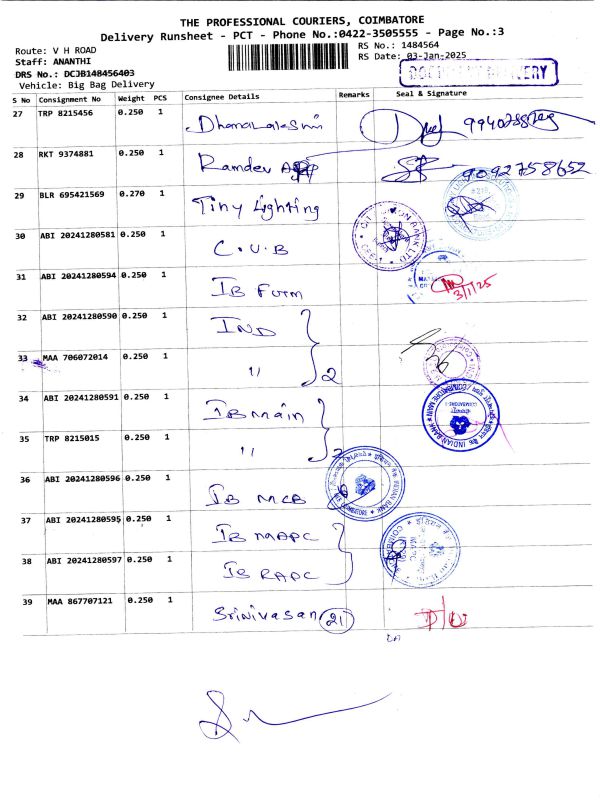 THE PROFESSIONAL COURIERS, COIMBATORE
Delivery Runsheet - PCT - Phone No.:0422-3505555 - Page No.:3
Route: V H ROAD
RS No.: 1484564
Staff: ANANTHI
RS Date: 03-Jan-2025
DRS No.: DCJB148456403
Vehicle: Big Bag Delivery
DELIVERY
S No Consignment No Weight PCS Consignee Details Remarks Seal & Signature
27 TRP 8215456 0.250 1 Dhanalakshmi
28 RKT 9374881 0.250 1 Ramdev 9092758652
29 BLR 695421569 0.270 1 Tiny Lighting
30 ABI 20241280581 0.250 1 C.U.B
31 ABI 20241280594 0.250 1 IB Furm 3/1/25
32 ABI 20241280590 0.250 1 IND
33 MAA 706072014 0.250 1 " 2
34 ABI 20241280591 0.250 1 IB Main
35 TRP 8215015 0.250 1 " 2
36 ABI 20241280596 0.250 1 IB MCB
37 ABI 20241280595 0.250 1 IB MAPC
38 ABI 20241280597 0.250 1 IB RAPC
39 MAA 867707121 0.250 1 Srinivasan 21